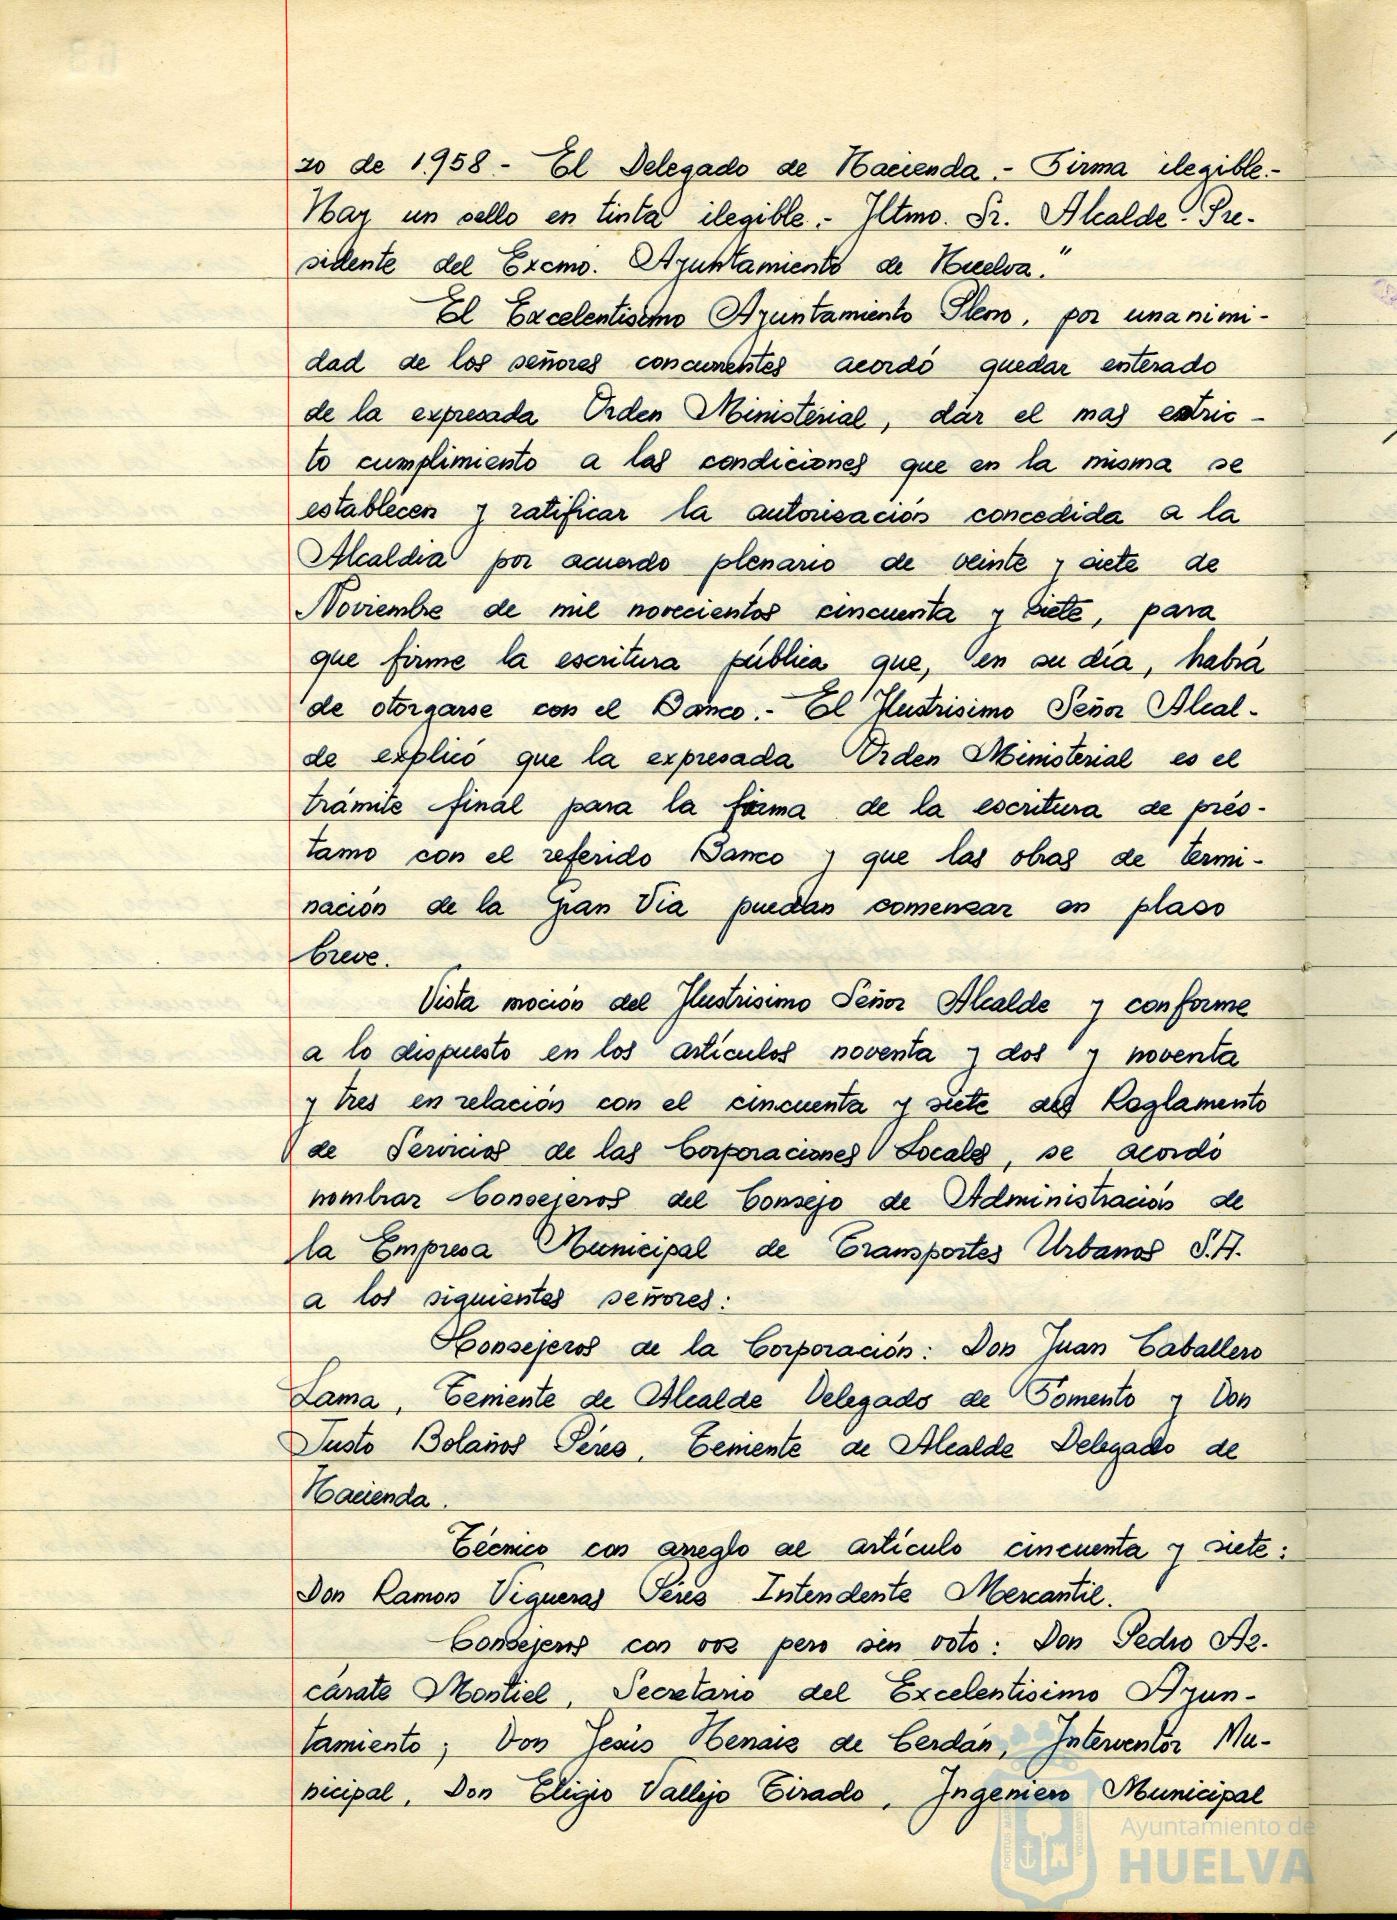 ro de 1.958.- El Delegado de Hacienda.- Firma ilegible.-
Hay un sello en tinta ilegible.- Iltmo. Sr. Alcalde-Pre-
sidente del Excmo. Ayuntamiento de Huelva."
El Excelentísimo Ayuntamiento Pleno, por unanimi-
dad de los señores concurrentes acordó quedar enterado
de la expresada Orden Ministerial, dar el mas estric-
to cumplimiento a las condiciones que en la misma se
establecen y ratificar la autorización concedida a la
Alcaldia por acuerdo plenario de veinte y siete de
Noviembre de mil novecientos cincuenta y siete, para
que firme la escritura pública que, en su día, habrá
de otorgarse con el Banco.- El Ilustrisimo Señor Alcal-
de explicó que la expresada Orden Ministerial es el
trámite final para la firma de la escritura de prés-
tamo con el referido Banco y que las obras de termi-
nación de la Gran Via puedan comenzar en plazo
breve.
Vista moción del Ilustrisimo Señor Alcalde y conforme
a lo dispuesto en los artículos noventa y dos y noventa
y tres en relación con el cincuenta y siete del Reglamento
de Servicios de las Corporaciones Locales, se acordó
nombrar Consejeros del Consejo de Administración de
la Empresa Municipal de Transportes Urbanos S.A.
a los siguientes señores:
Consejeros de la Corporación: Don Juan Caballero
Lama, Teniente de Alcalde Delegado de Fomento y Don
Justo Bolaños Pérez, Teniente de Alcalde Delegado de
Hacienda.
Técnico con arreglo al artículo cincuenta y siete:
Don Ramon Vigueras Pérez Intendente Mercantil.
Consejeros con voz pero sin voto: Don Pedro Az-
cárate Montiel, Secretario del Excelentisimo Ayun-
tamiento; Don Jesús Henaiz de Cerdán, Interventor Mu-
nicipal, Don Eligio Vallejo Tirado, Ingeniero Municipal
Ayuntamiento de
HUELVA